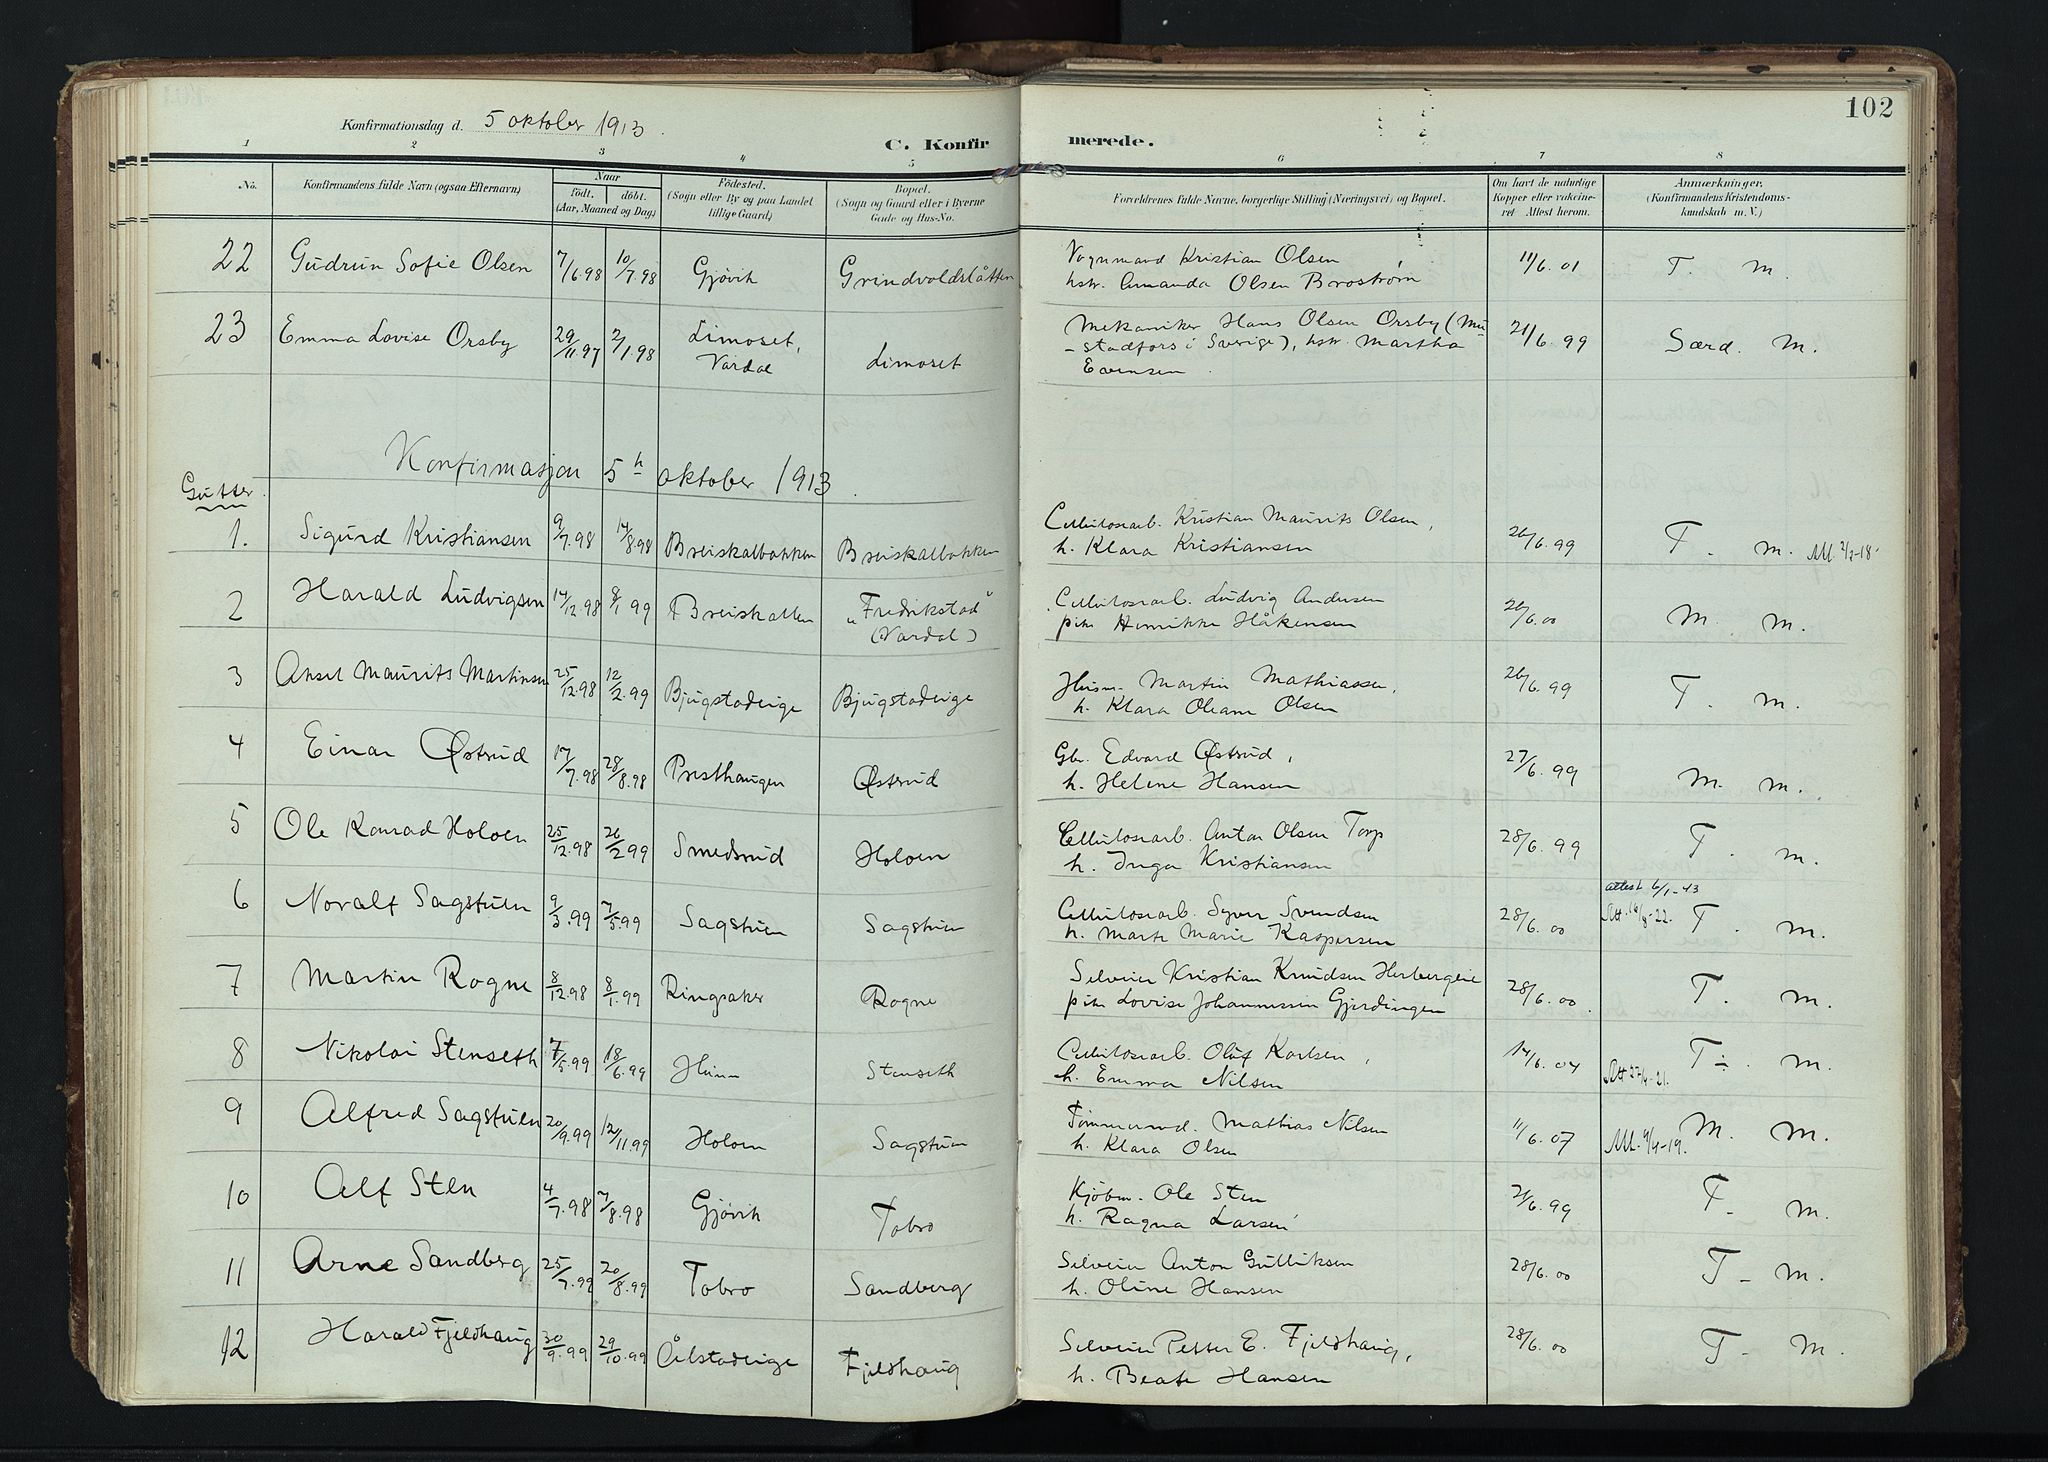 102
Konfirmationsdag d. 5 oktober 1913.
C. Konfirmerede.
1 2 3 4 5 6 7 8
No. Konfirmandens fulde Navn (ogsaa Efternavn) Naar født. døbt. (Aar, Maaned og Dag) Fødested. (Sogn eller By og paa Landet tillige Gaard) Bopæl. (Sogn og Gaard eller i Byerne Gade og Hus-No. Forældrenes fulde Navne, borgerlige Stilling (Næringsvei) og Bopæl. Om havt de naturlige Kopper eller vakcineret Attest herom. Anmærkninger. (Konfirmandens Kristendomskundskab m. V.)
22 Gudrun Sofie Olsen 7/6.98 10/7.98 Gjøvik Grindvoldslåtten Vognmand Kristian Olsen 11/6.01 T. M.
hstr. Amanda Olsen Brostrøm
23 Emma Lovise Orsby 29/11.97 2/1.98 Limoset, Vardal Limoset Mekaniker Hans Olsen Orsby (Mu- 21/6.99 Særd. M.
-stadfors i Sverige), hstr. Martha
Evensen
Konfirmasjon 5 oktober 1913.
Gutter.
1. Sigurd Kristiansen 9/7.98 14/8.98 Breiskalbakken Breiskalbakken Cellulosearb. Kristian Maurits Olsen, 26/6.99 T. M. Att. 2/2-18
h. Klara Kristiansen
2 Harald Ludvigsen 14/12.98 8/1 99 Breiskallen "Fredrikstad" (Vardal) Cellulosearb. Ludvig Andersen 26/6.00 M. M.
pike Henrikke Håkensen
3 Aksel Maurits Martinsen 25/12.98 12/2.99 Bjugstadeige Bjugstadeige Husm. Martin Mathiassen, 26/6.99 T. M.
h. Klara Oleane Olsen
4 Einar Østrud 17/7.98 28/8.98 Presthaugen Østrud Gbr. Edvard Østrud, 27/6.99 M. M.
h. Helene Hansen
5 Ole Konrad Holoen 25/12.98 26/2 99 Smedsrud Holoen Cellulosearb. Anton Olsen Torp 28/6.99 T. M.
h. Inga Kristiansen
attest 6/1-43
6 Noralf Sagstuen 9/3.99 7/5.99 Sagstuen Sagstuen Cellulosearb. Syver Svendsen 28/6.00 T. M.
h. Marte Marie Kaspersen
7 Martin Rogne 8/12.98 8/1.99 Ringsaker Rogne Selveier Kristian Knudsen 28/6.00 T. M.
pike Lovise Johannessen Gjerdingen
8 Nikolai Stenseth 7/5.99 18/6.99 Hunn Stenseth Cellulosearb. Oluf Karlsen, 14/6.04 T÷. M.
h. Emma Nilsen
9 Alfred Sagstuen 20/9.99 12/11.99 Holoen Sagstuen Tømmermd. Mathias Nilsen 11/6.07 Att. 9/4-19. M. M.
h. Klara Olsen
10 Alf Sten 4/7.98 7/8.98 Gjøvik Tobro Kjøbm. Ole Sten 21/6.99 T. M.
h. Ragna Larsen
11 Arne Sandberg 25/7.99 20/8.99 Tobro Sandberg Selveier Anton Gulliksen 28/6.00 T - M.
h. Oline Hansen
12 Harald Fjeldhaug 30/9.99 29/10.99 Ålstadeige Fjeldhaug Selveier Petter E. Fjeldhaug, 28/6.00 T - M.
h. Beate Hansen